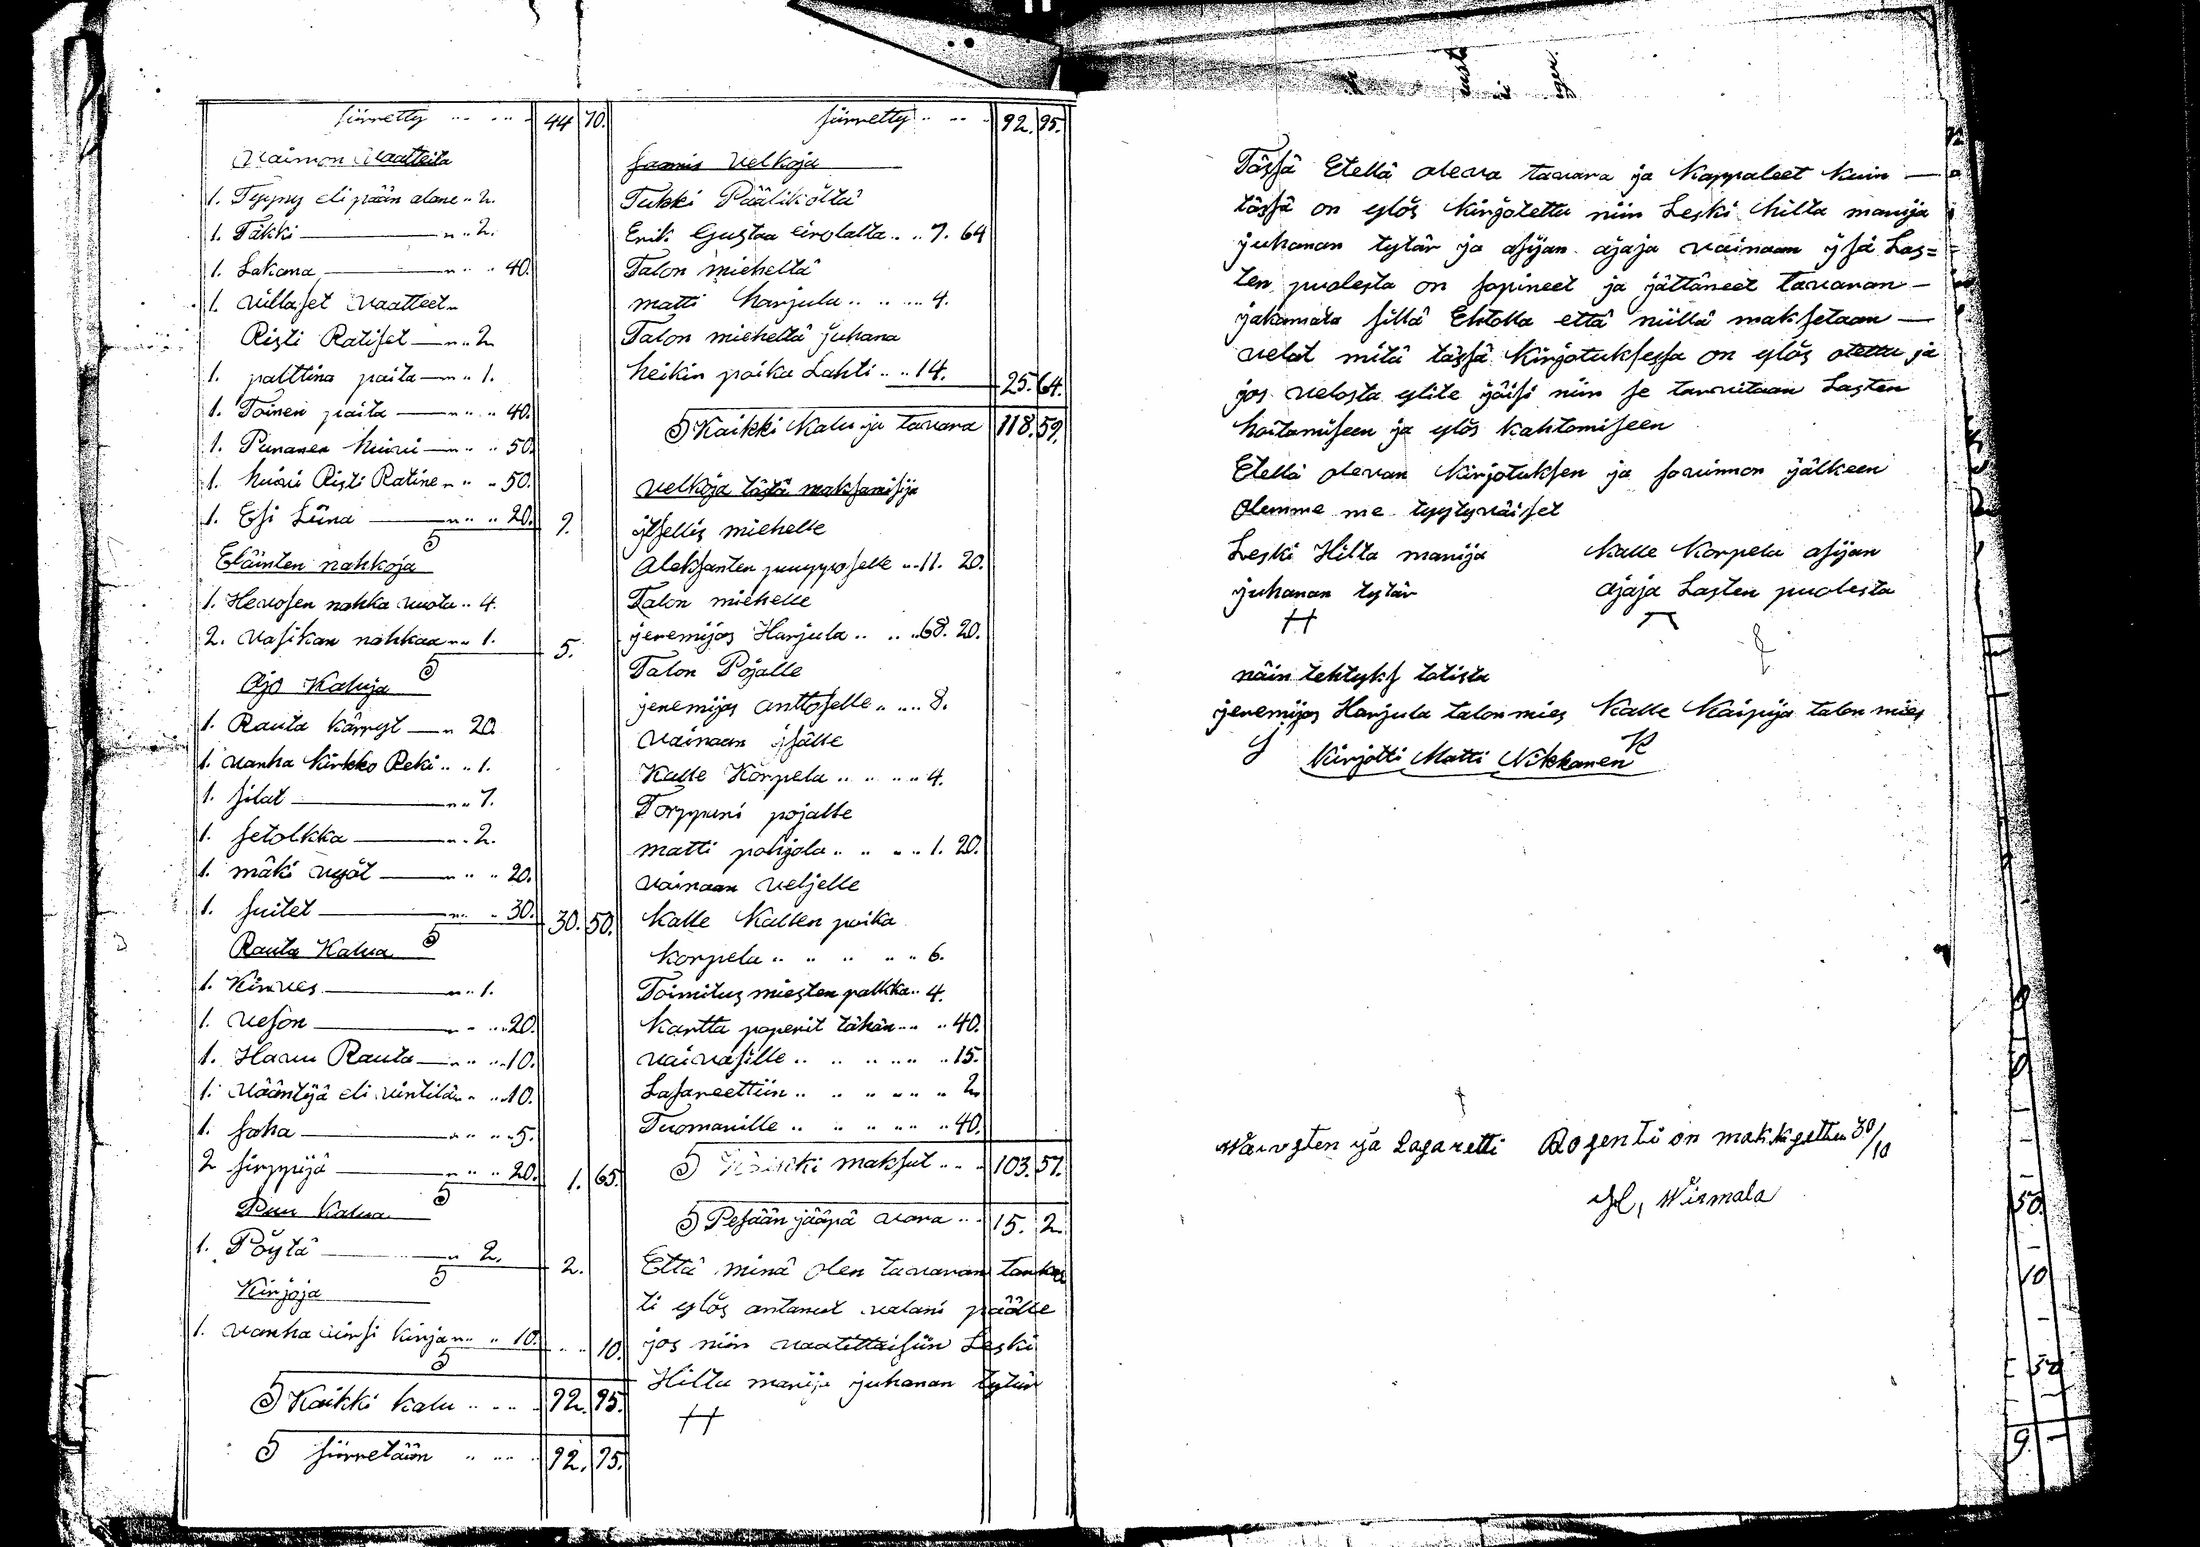 siirretty .. .. .. 44 70.
Vaimon Vaatteita
1. Tyyny eli pään alane .. 2.
1. Täkki — „ .. 2.
1. Lakana — „ .. 40.
1. villaset vaatteet „
Risti Ratiset — „ .. 2
1. palttina paita — „ .. 1.
1. Toinen paita — „ .. 40.
1. Punanen huivi — „ .. 50.
1. huivi Risti Ratine „ .. 50.
1. Esi Liina — „ .. 20. 9.
S
Eläinten nahkoja
1. Hevosen nahka vuota .. 4.
2. vasikan nahkaa „ .. 1. 5.
S
Ajo Kaluja
1. Rauta kärryt — „ 20.
1. vanha kirkko Reki .. .. 1.
1. silat — „ .. 7.
1. setolkka — „ .. 2.
1. mäki vyöt — „ .. 20.
1. suitet — „ .. 30. 30. 50.
Rauta Kalua S
1. Kirves — „ .. 1.
1. veson — „ .. 20.
1. Haru Rauta — „ .. 10.
1. vääntijä eli vintilä „ .. 10.
1. saha — „ .. 5.
2 sirppijä — „ .. 20. 1. 65.
S
Puu Kalua
1. Pöytä — „ 2. 2.
S
Kirjoja
1. vanha virsi kirja „ .. 10. .. 10.
S
S Kaikki kalu .. .. .. 92. 95.
S siirretään .. .. .. 92. 95.
siirretty .. .. 92. 95.
saamis velkoja
Tukki Pääliköltä
Erik Gustaa Eirolalta .. .. 7. 64
Talon mieheltä
matti harjula .. .. .. 4.
Talon mieheltä juhana
heikin poika Lahti .. .. 14. 25. 64.
S Kaikki kalu ja tavara 118. 59.
velkoja tästä maksamisija
itsellis miehelle
Aleksanten puupposelle .. 11. 20.
Talon miehelle
jeremijas Harjula .. .. .. 68. 20.
Talon Pojalle
jeremijas anttoselle .. .. 8.
vainaan isälle
Kalle Korpela .. .. .. 4.
Torppari pojalle
matti pohjola .. .. .. 1. 20.
vainaan veljelle
Kalle Kallen poika
korpela .. .. .. .. 6.
Toimitus miesten palkka .. 4.
kartta paperit tähän .. .. 40.
vaivasille .. .. .. .. 15.
Lasareettiin .. .. .. .. 2
Tuomarille .. .. .. .. 40.
S Kaikki maksut .. .. 103. 57.
S Pesään jääpä vara .. 15. 2
Että minä olen tavaran tarkas
ti ylös antanut valani päälle
jos niin vaatittaisiin Leski
Hilta marija juhanan tytär
H
Tässä Etellä oleva tavara ja kappaleet kuin —
tässä on ylös kirjotettu niin Leski hilta marija
juhanan tytär ja asijan ajaja vainaan isä Las=
ten puolesta on sopineet ja jättäneet tavaran —
jakamata sillä Ehtolla että niillä maksetaan —
velat mitä tässä kirjotuksessa on ylös otettu ja
jos velosta ylite jäisi niin se tarvitaan Lasten
hoitamiseen ja ylös kahtomiseen
Etellä olevan kirjotuksen ja sovinnon jälkeen
olemme me tyytyväiset
Leski Hilta marija Kalle Korpela asijan
juhanan tytär ajaja Lasten puolesta
H
näin tehtyks totista
jeremijas Harjula talon mies Kalle Kaipija talon mies
K
Kirjotti Matti Nikkanen
Waivasten ja Lasaretti Rosenti on makksettu 30/10
Wirmala